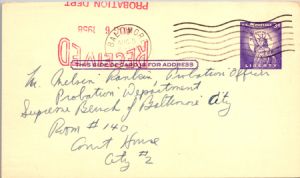 PROBATION DEPT
6 1958
RECEIVED
BALTIMOR
U.S. POSTAGE 3¢
LIBERTY
THIS SIDE OF CARD IS FOR ADDRESS
Mr. Nelson Probation Officer
Probation Department
Supreme Bench of Baltimore City
Room #140
Court House
City #2